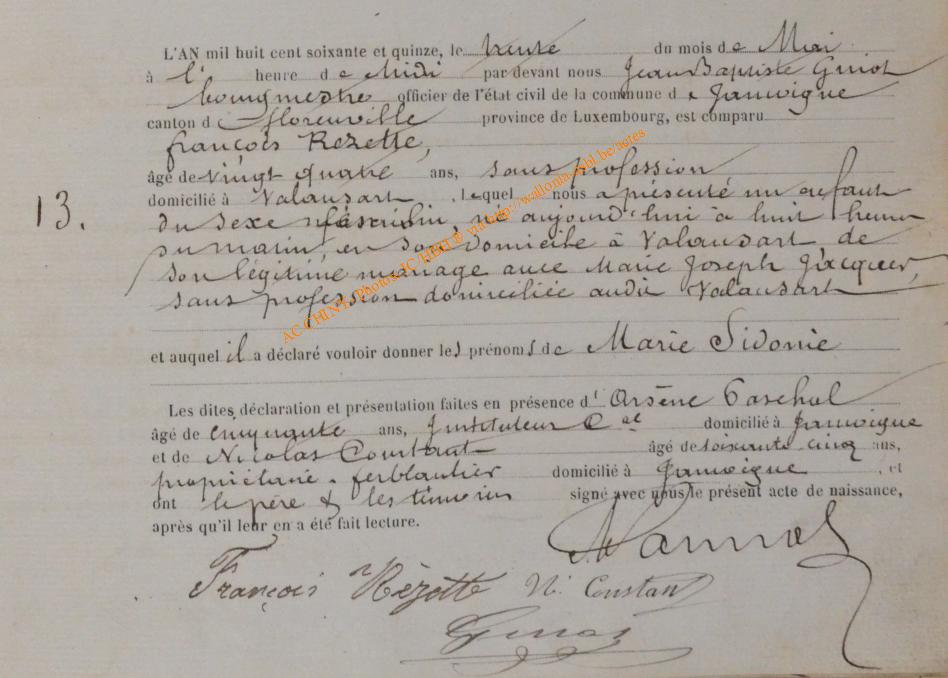 L'AN mil huit cent soixante et quinze, le trente du mois de Mai
à l' heure de Midi par devant nous Jean Baptiste Guiot
bourgmestre officier de l'état civil de la commune de Jamoigne
canton d Florenville province de Luxembourg, est comparu
françois Rezette,
âgé de vingt quatre ans, sans profession
domicilié à Valansart, lequel nous a présenté un enfant
13. du sexe né aujourd'hui à huit heures
du matin, en son domicile à Valansart, de
son légitime mariage avec Marie Joseph Jacques,
sans profession domiciliée audit Valansart
et auquel il a déclaré vouloir donner les prénoms de Marie Sidonie
Les dites déclaration et présentation faites en présence d'Arsène
âgé de cinquante ans, Instituteur domicilié à Jamoigne
et de Nicolas Constant âgé de soixante cinq ans,
propriétaire - ferblantier domicilié à Jamoigne, et
ont le père & les témoins signé avec nous le présent acte de naissance,
après qu'il leur en a été fait lecture.
François Rézette N. Constant
AC CHINY Photos JC HERVE via http://wallonia-asbl.be/actes